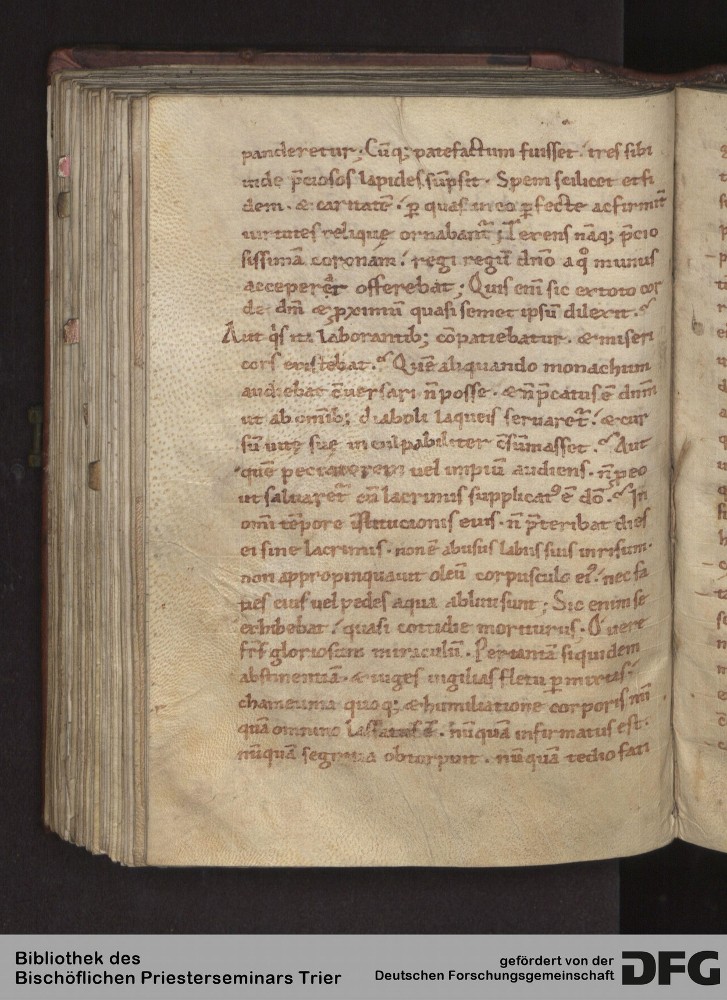 panderetur; Cūq; patefactum fuisset. tres sibi
inde p̄ciosos lapides sūpsit. Spem scilicet & fi
dem. & caritatē. ꝑ quas in eo ꝑfecte ac firmit̄
uirtutes relique ornabant̄; Ferens nāq; p̄cio
sissimā coronam. regi regū dn̄o a qͦ munus
acceperat̄ offerebat; Quis eni sic ex toto cor
de dn̄i & ꝓximū quasi semet ipsū dilexit.
Aut qͥs ita laborantib; cōpatiebatur. & miseri
cors existebat. Quē aliquando monachum
audiebat c̄uersari n̄ posse. & n̄ p̄catus ē dn̄m
ut ab om̄ib; diaboli laqueis seruaret̄. & cur
sū uite sue inculpabiliter c̄sūmasset. Aut
quē peccatorem uel impiū audiens. n̄ p eo
ut saluaret̄ cū lacrimis supplicatꝰ ē dō. In
omi tēpore īstitucionis eius. n̄ p̄teribat dies
ei sine lacrimis. non ē abusus labiis suis in risum.
non appropinquauit oleū corpusculo eiꝰ. nec fa
cies eius uel pedes aqua abluti sunt; Sic enim se
exhibebat. quasi cottidie moriturus. O uere
fr̄s gloriosum miraculū. Per tantā siquidem
abstinentiā. & iuges uigilias fletū ꝑmixtus.
chameunia quoq; & humiliatione corporis nī
quā omnino lassatus ē. nūquā infirmatus est.
nūquā segnicia obtorpuit. nūquā tedio fati
Bibliothek des
Bischöflichen Priesterseminars Trier
gefördert von der
Deutschen Forschungsgemeinschaft
DFG